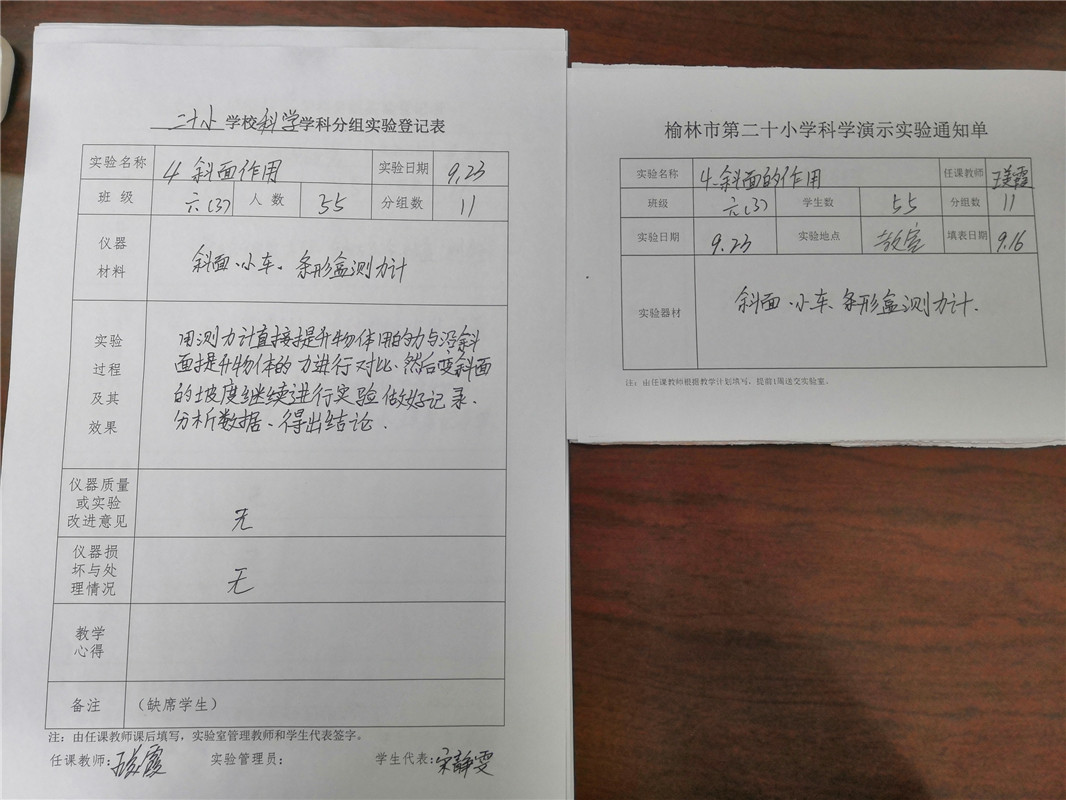 二十小学校科学学科分组实验登记表
实验名称 4 斜面作用 实验日期 9.23
班 级 六(3) 人 数 55 分组数 11
仪器
材料
斜面、小车、条形盒测力计
实验
过程
及其
效果
用测力计直接提升物体用的力与沿斜
面提升物体的力进行对比、然后变斜面
的坡度继续进行实验做好记录、
分析数据、得出结论.
仪器质量
或实验
改进意见
无
仪器损
坏与处
理情况
无
教学
心得
备注 (缺席学生)
注：由任课教师课后填写，实验室管理教师和学生代表签字。
任课教师: 实验管理员: 学生代表:宋静雯
榆林市第二十小学科学演示实验通知单
实验名称 4.斜面的作用 任课教师
班级 六(3) 学生数 55 分组数 11
实验日期 9.23 实验地点 教室 填表日期 9.16
实验器材 斜面、小车、条形盒测力计.
注：由任课教师根据教学计划填写，提前1周送交实验室。